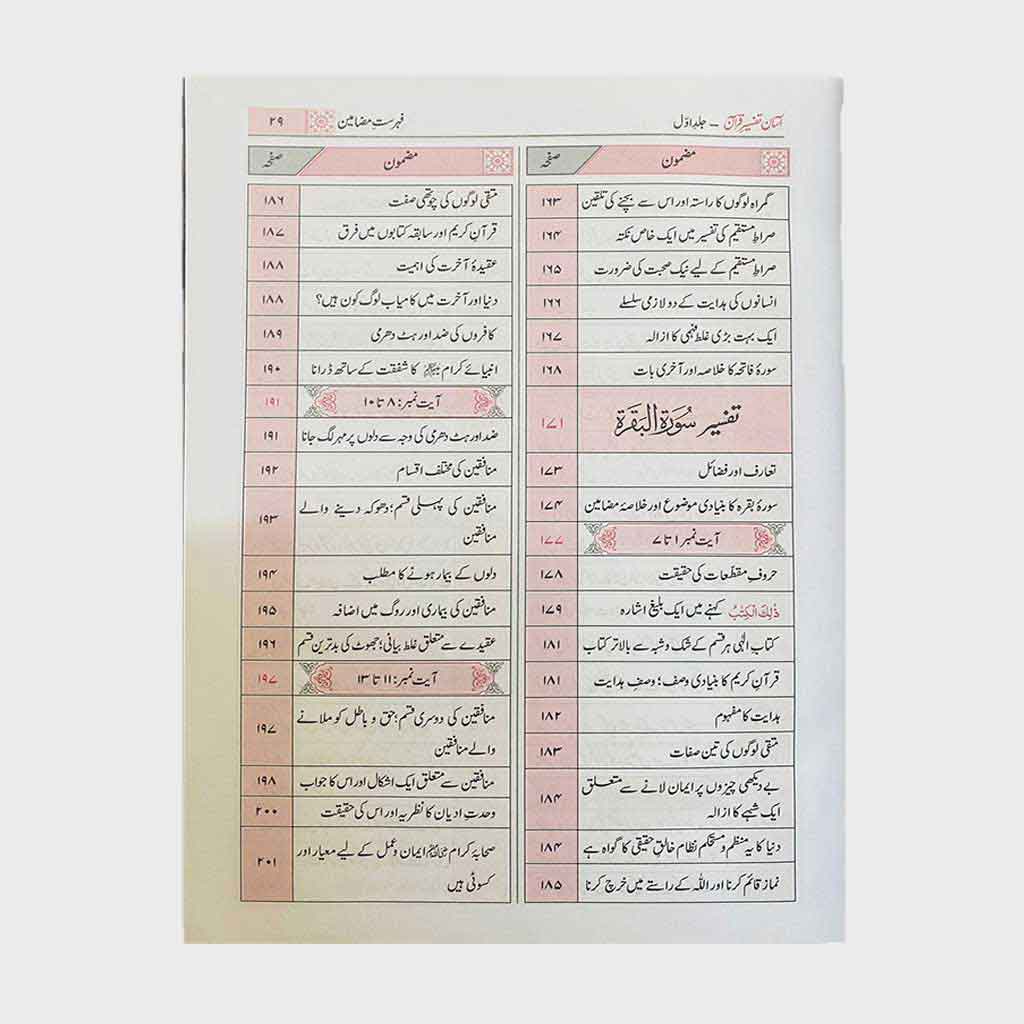 آسان تفسیر قرآن – جلد اوّل
فہرستِ مضامین
۲۹
مضمون صفحہ
گمراہ لوگوں کا راستہ اور اس سے بچنے کی تلقین ۱۶۳
صراطِ مستقیم کی تفسیر میں ایک خاص نکتہ ۱۶۴
صراطِ مستقیم کے لیے نیک صحبت کی ضرورت ۱۶۵
انسانوں کی ہدایت کے دو لازمی سلسلے ۱۶۶
ایک بہت بڑی غلط فہمی کا ازالہ ۱۶۷
سورۂ فاتحہ کا خلاصہ اور آخری بات ۱۶۸
تفسیر سُوْرَۃُ الْبَقَرَۃِ ۱۷۱
تعارف اور فضائل ۱۷۳
سورۂ بقرہ کا بنیادی موضوع اور خلاصۂ مضامین ۱۷۴
آیت نمبر ۱ تا ۷ ۱۷۷
حروفِ مقطّعات کی حقیقت ۱۷۸
ذٰلِکَ الْکِتٰبُ کہنے میں ایک بلیغ اشارہ ۱۷۹
کتابِ الٰہی ہر قسم کے شک و شبہ سے بالاتر کتاب ۱۸۱
قرآنِ کریم کا بنیادی وصف؛ وصفِ ہدایت ۱۸۱
ہدایت کا مفہوم ۱۸۲
متقی لوگوں کی تین صفات ۱۸۳
بے دیکھی چیزوں پر ایمان لانے سے متعلق
ایک شبہے کا ازالہ ۱۸۴
دنیا کا یہ منظم و مستحکم نظام خالقِ حقیقی کا گواہ ہے ۱۸۴
نماز قائم کرنا اور اللہ کے راستے میں خرچ کرنا ۱۸۵
مضمون صفحہ
متقی لوگوں کی چوتھی صفت ۱۸۶
قرآنِ کریم اور سابقہ کتابوں میں فرق ۱۸۷
عقیدۂ آخرت کی اہمیت ۱۸۸
دنیا اور آخرت میں کامیاب لوگ کون ہیں؟ ۱۸۸
کافروں کی ضد اور ہٹ دھرمی ۱۸۹
انبیائے کرام کا شفقت کے ساتھ ڈرانا ۱۹۰
آیت نمبر: ۸ تا ۱۰ ۱۹۱
ضد اور ہٹ دھرمی کی وجہ سے دلوں پر مہر لگ جانا ۱۹۱
منافقین کی مختلف اقسام ۱۹۲
منافقین کی پہلی قسم؛ دھوکہ دینے والے
منافقین ۱۹۳
دلوں کے بیمار ہونے کا مطلب ۱۹۴
منافقین کی بیماری اور روگ میں اضافہ ۱۹۵
عقیدے سے متعلق غلط بیانی؛ جھوٹ کی بدترین قسم ۱۹۶
آیت نمبر: ۱۱ تا ۱۳ ۱۹۷
منافقین کی دوسری قسم؛ حق و باطل کو ملانے
والے منافقین ۱۹۷
منافقین سے متعلق ایک اشکال اور اس کا جواب ۱۹۸
وحدتِ ادیان کا نظریہ اور اس کی حقیقت ۲۰۰
صحابۂ کرام ایمان و عمل کے لیے معیار اور
کسوٹی ہیں ۲۰۱